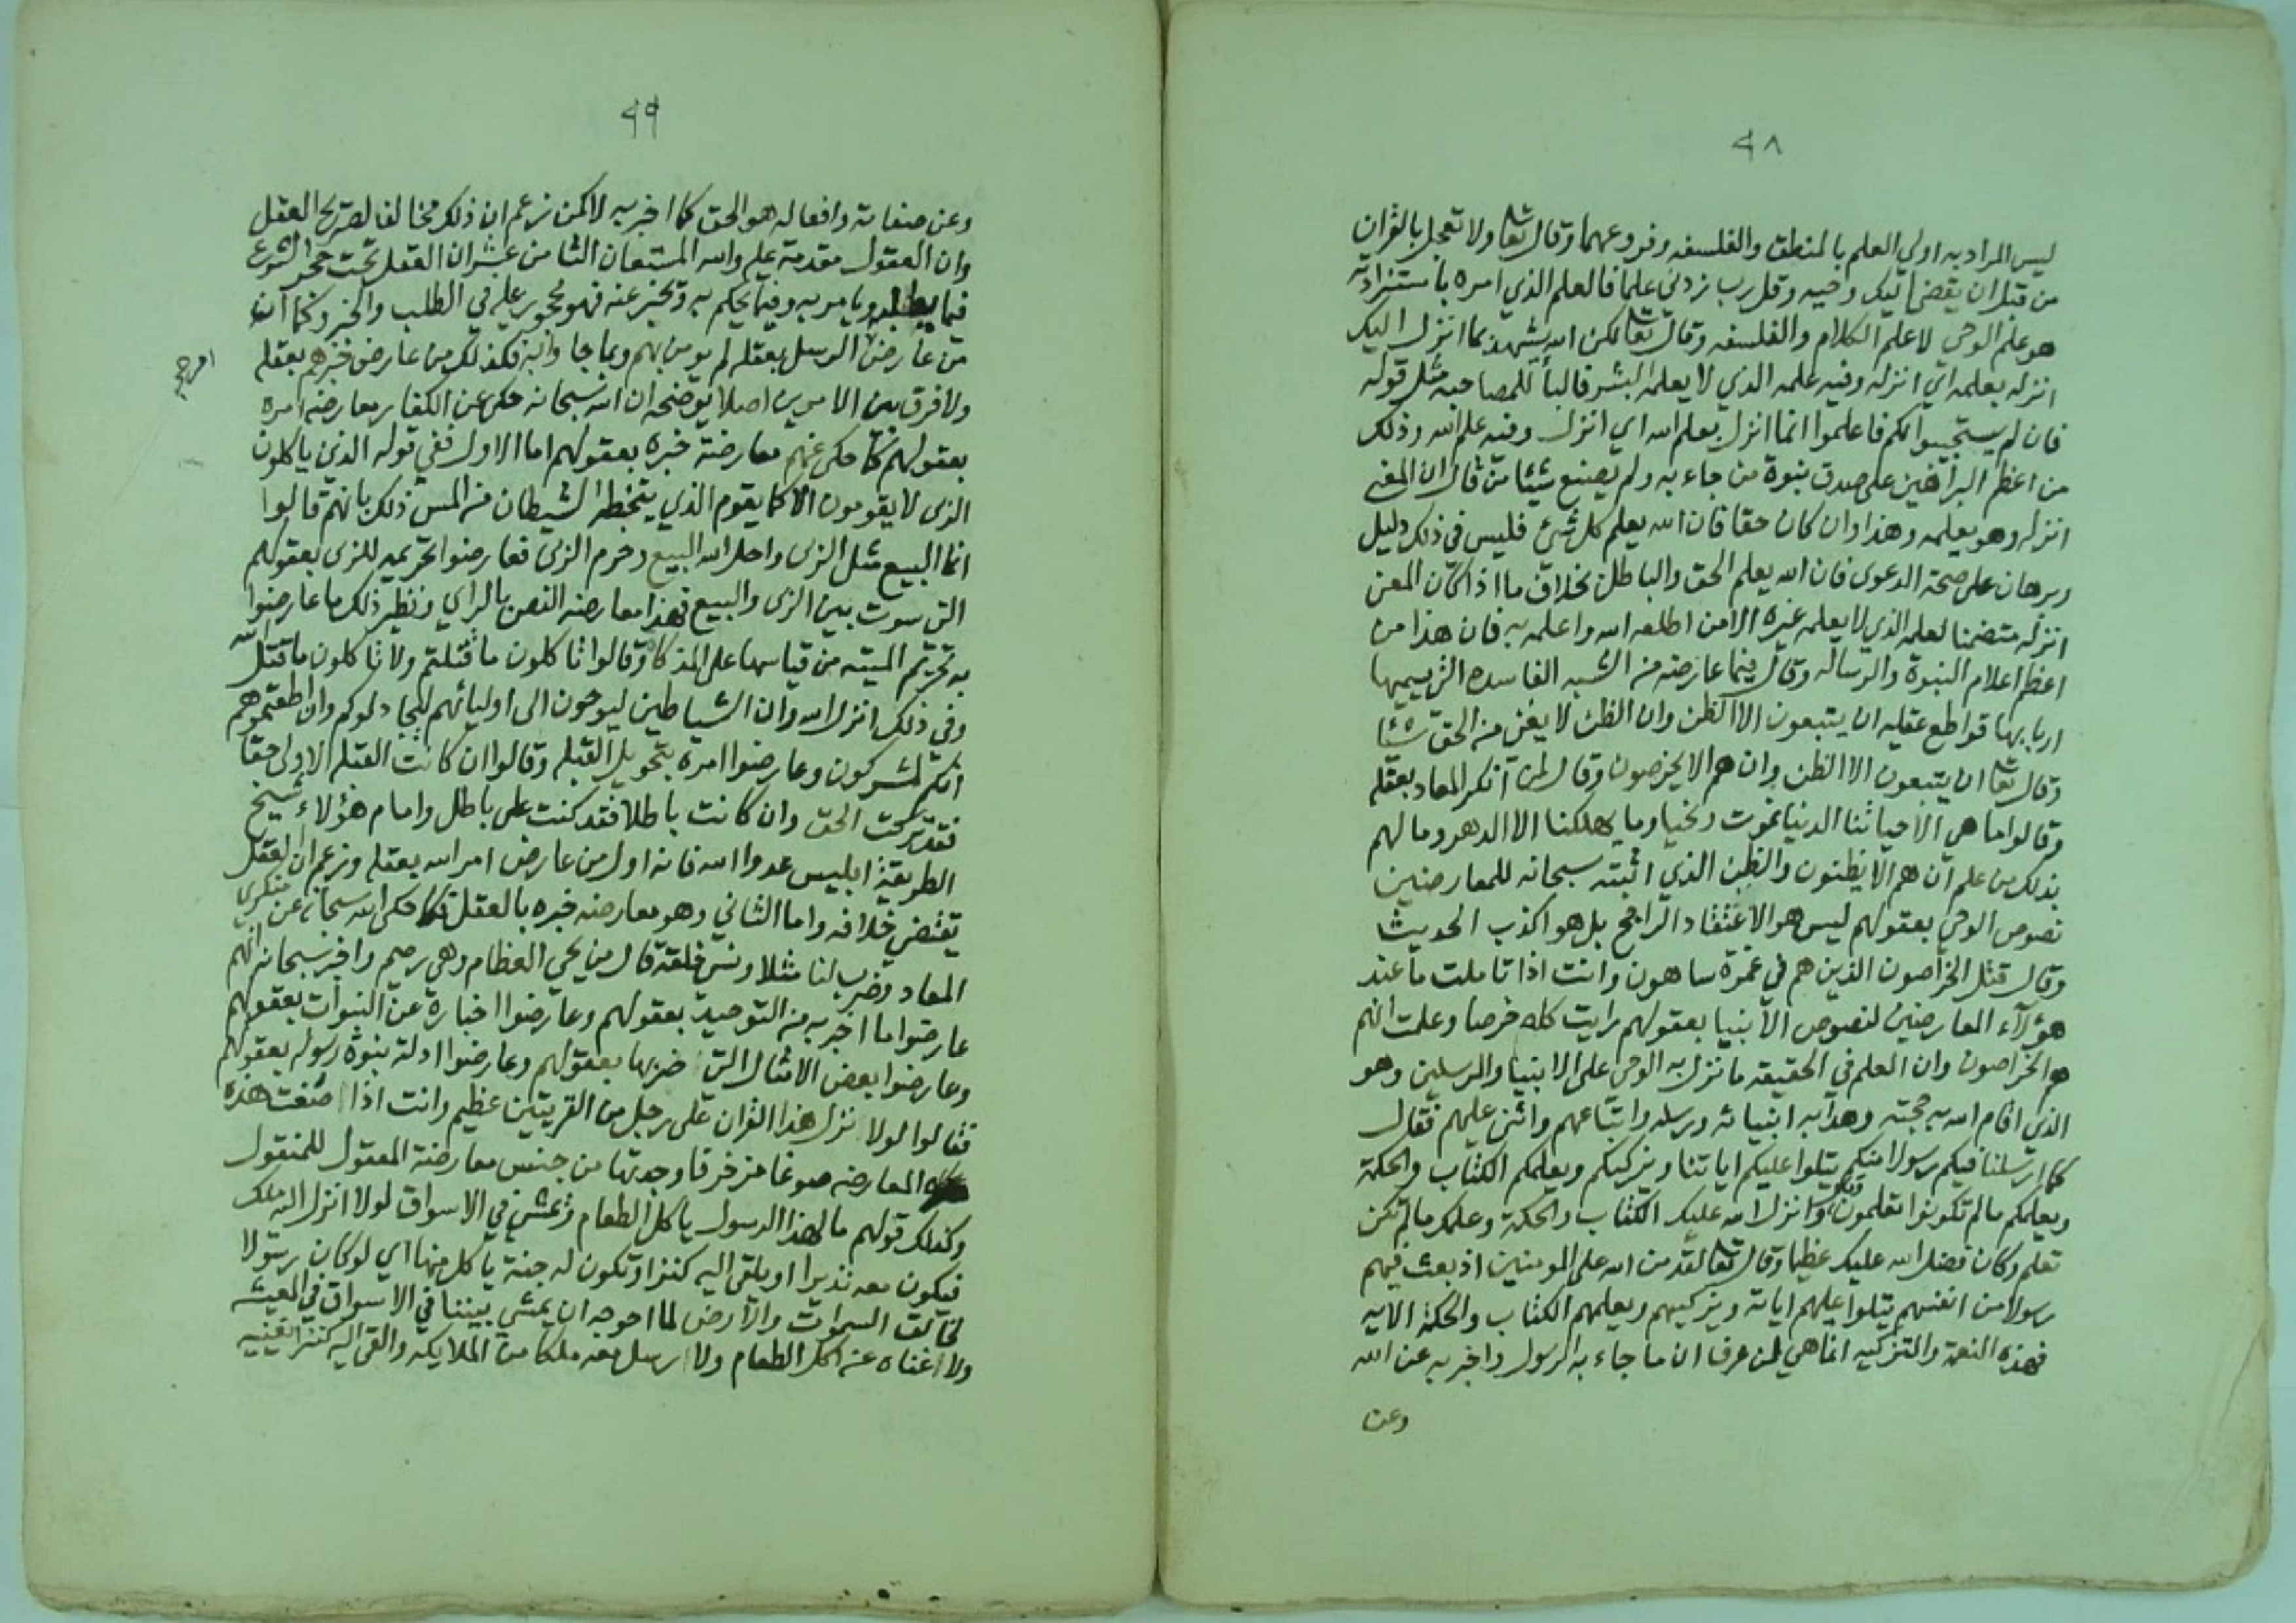 ٩٨
ليس المراد به اولي العلم بالمنطق والفلسفه وفروعهما وقال تعا ولا تعجل بالقران
من قبل ان يقضى اليك وحيه وقل رب زدني علما فالعلم الذي امره باستزادته
هو علم الوحي لا علم الكلام والفلسفه وقال تعا لكن الله يشهد بما انزل اليك
انزله بعلمه اي انزله وفيه علمه الذي لا يعلمه البشر فالبا للمصاحبه مثل قوله
فان لم يستجيبوا لكم فاعلموا انما انزل بعلم الله اي انزل وفيه علم الله وذلك
من اعظم البراهين على صدق نبوة من جاء به ولم يصنع شيئا من قال ان المعنى
انزله وهو يعلمه وهذا وان كان حقا فان الله يعلم كل شيء فليس في ذلك دليل
وبرهان على صحة الدعوى فان الله يعلم الحق والباطل بخلاف ما اذا كان المعنى
انزله متضمنا لعلمه الذي لا يعلمه غيره الا من اطلعه الله واعلمه به فان هذا من
اعظم اعلام النبوة والرساله وقال فيما عارضه من الشبه الفاسده التي يسميها
اربابها قواطع عقليه ان يتبعون الا الظن وان الظن لا يغني من الحق شيئا
وقال تعا ان يتبعون الا الظن وان هم الا يخرصون وقال لمن انكر المعاد بعقله
وقالوا ما هي الا حياتنا الدنيا نموت ونحيا وما يهلكنا الا الدهر وما لهم
بذلك من علم ان هم الا يظنون والظن الذي اثبته سبحانه للمعارضين
نصوص الوحي بعقولهم ليس هو الاعتقاد الراجح بل هو اكذب الحديث
وقال قتل الخراصون الذين هم في غمرة ساهون وانت اذا تاملت ما عند
هؤلآء المعارضين لنصوص الانبيا بعقولهم رايت كله خرصا وعلمت انهم
هم الخراصون وان العلم في الحقيقه ما نزل به الوحي على الانبيا والمرسلين وهو
الذي اقام الله به حجته وهدا به انبيائه ورسله واتباعهم واثنى عليهم فقال
كما ارسلنا فيكم رسولا منكم يتلوا عليكم اياتنا ويزكيكم ويعلمكم الكتاب والحكمة
ويعلمكم مالم تكونوا تعلمون وانزل الله عليك الكتاب والحكمة وعلمك مالم تكن
تعلم وكان فضل الله عليك عظيما وقال تعا لقد من الله على المومنين اذ بعث فيهم
رسولا من انفسهم يتلوا عليهم اياته ويزكيهم ويعلمهم الكتاب والحكمة الايه
فهذه النعمة والتزكيه انما هي لمن عرف ان ما جاء به الرسول واخبر به عن الله
وعن
٩٩
وعن صفاته وافعاله هو الحق كما اخبر به لا كمن زعم ان ذلك مخالفا لصريح العقل
وان العقول مقدمة عليه والله المستعان الثامن عشر ان العقل تحت حجر الشرع
فيما يطلبه ويامر به وفيما يحكم به ويخبر عنه فهو محجور عليه في الطلب والخبر وكما ان
من عارض الرسل بعقله لم يومن بهم وبما جاوا به فكذلك من عارض خبرهم بعقله
ولا فرق بين الامرين اصلا يوضحه ان الله سبحانه حكى عن الكفار معارضة امره
بعقولهم كما حكى عنهم معارضة خبره بعقولهم اما الاول ففي قوله الذين ياكلون
الزى لا يقومون الا كما يقوم الذي يتخطبه الشيطان من المس ذلك بانهم قالوا
انما البيع مثل الزى واحل الله البيع وحرم الزى فعارضوا تحريمه للزى بعقولهم
التي سوت بين الزى والبيع فهذا معارضة النص بالراي ونظير ذلك ما عارضوا
به تحريم الميته من قياسها على المذكاة وقالوا تاكلون ما قتلتم ولا تاكلون ما قتل الله
وفي ذلك انزل الله وان الشياطين ليوحون الى اوليائهم ليجادلوكم وان اطعتموهم
انكم لمشركون وعارضوا امره بتحويل القبله وقالوا ان كانت القبله الاولى حقا
فقد تركت الحق وان كانت باطلا فقد كنت على باطل وامام هؤلاء شيخ
الطريقة ابليس عدوا الله فانه اول من عارض امر الله بعقله وزعم ان العقل
يقتضي خلافه واما الثاني وهو معارضه خبره بالعقل فكما حكى الله سبحانه عن منكري
المعاد وضرب لنا مثلا ونسي خلقه قال من يحي العظام وهي رميم واخبر سبحانه انهم
عارضوا ما اخبر به من التوحيد بعقولهم وعارضوا اخباره عن النبوات بعقولهم
وعارضوا بعض الامثال التي ضربها بعقولهم وعارضوا ادلة نبوة رسوله بعقولهم
فقالوا لولا نزل هذا القران على رجل من القريتين عظيم وانت اذا صغت هذه
المعارضه صوغا مزخرفا وجدتها من جنس معارضة المعقول للمنقول
وكذلك قولهم مال هذا الرسول ياكل الطعام ويمشي في الاسواق لولا انزل اليه ملك
فيكون معه نذيرا او يلقى اليه كنز او تكون له جنة ياكل منها اي لو كان رسولا
لخالق السموات والارض لما احوجه ان يمشي بيننا في الاسواق في المعيشه
ولا اغناه عن اكل الطعام ولا ارسل معه ملكا من الملايكه والقى اليه كنزا يغنيه